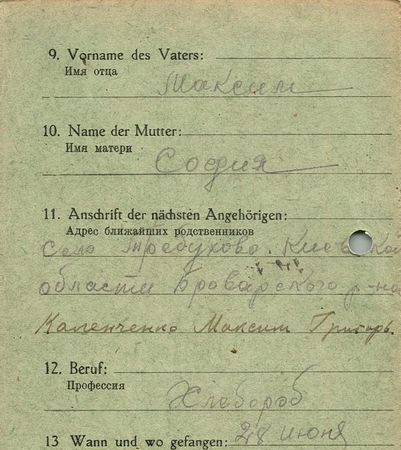 9. Vorname des Vaters:
Имя отца
Максим
10. Name der Mutter:
Имя матери
София
11. Anschrift der nächsten Angehörigen:
Адрес ближайших родственников
Село Требухово. Киев кой
области Броварского р-на
Каленченко Максим Григорь.
12. Beruf:
Профессия
Хлебороб
13 Wann und wo gefangen: 28 июня